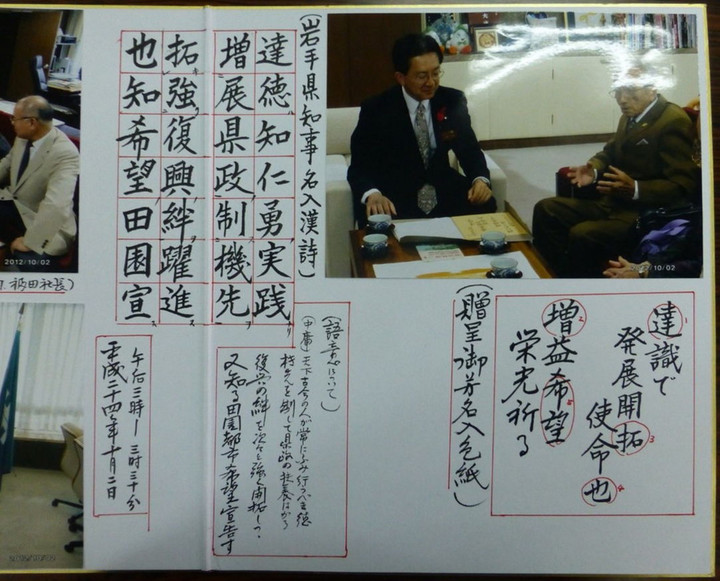 (岩手県知事名入漢詩)
達徳知仁勇実践
増展県政制機先
拓強復興絆躍進
也知希望田園宣
達識で
発展開拓
使命也
増益希望
栄光祈る
(贈呈御芳名入色紙)
(語意について)
(中庸)天下古今の人が常にふみ行うべき徳
機先を制して県政の
復興の絆を次々と強く開拓して、
又知る田園都市希望宣告す
午后三時ー三時三十分
平成二十四年十月二日
2012/10/02
10/02
田社長)